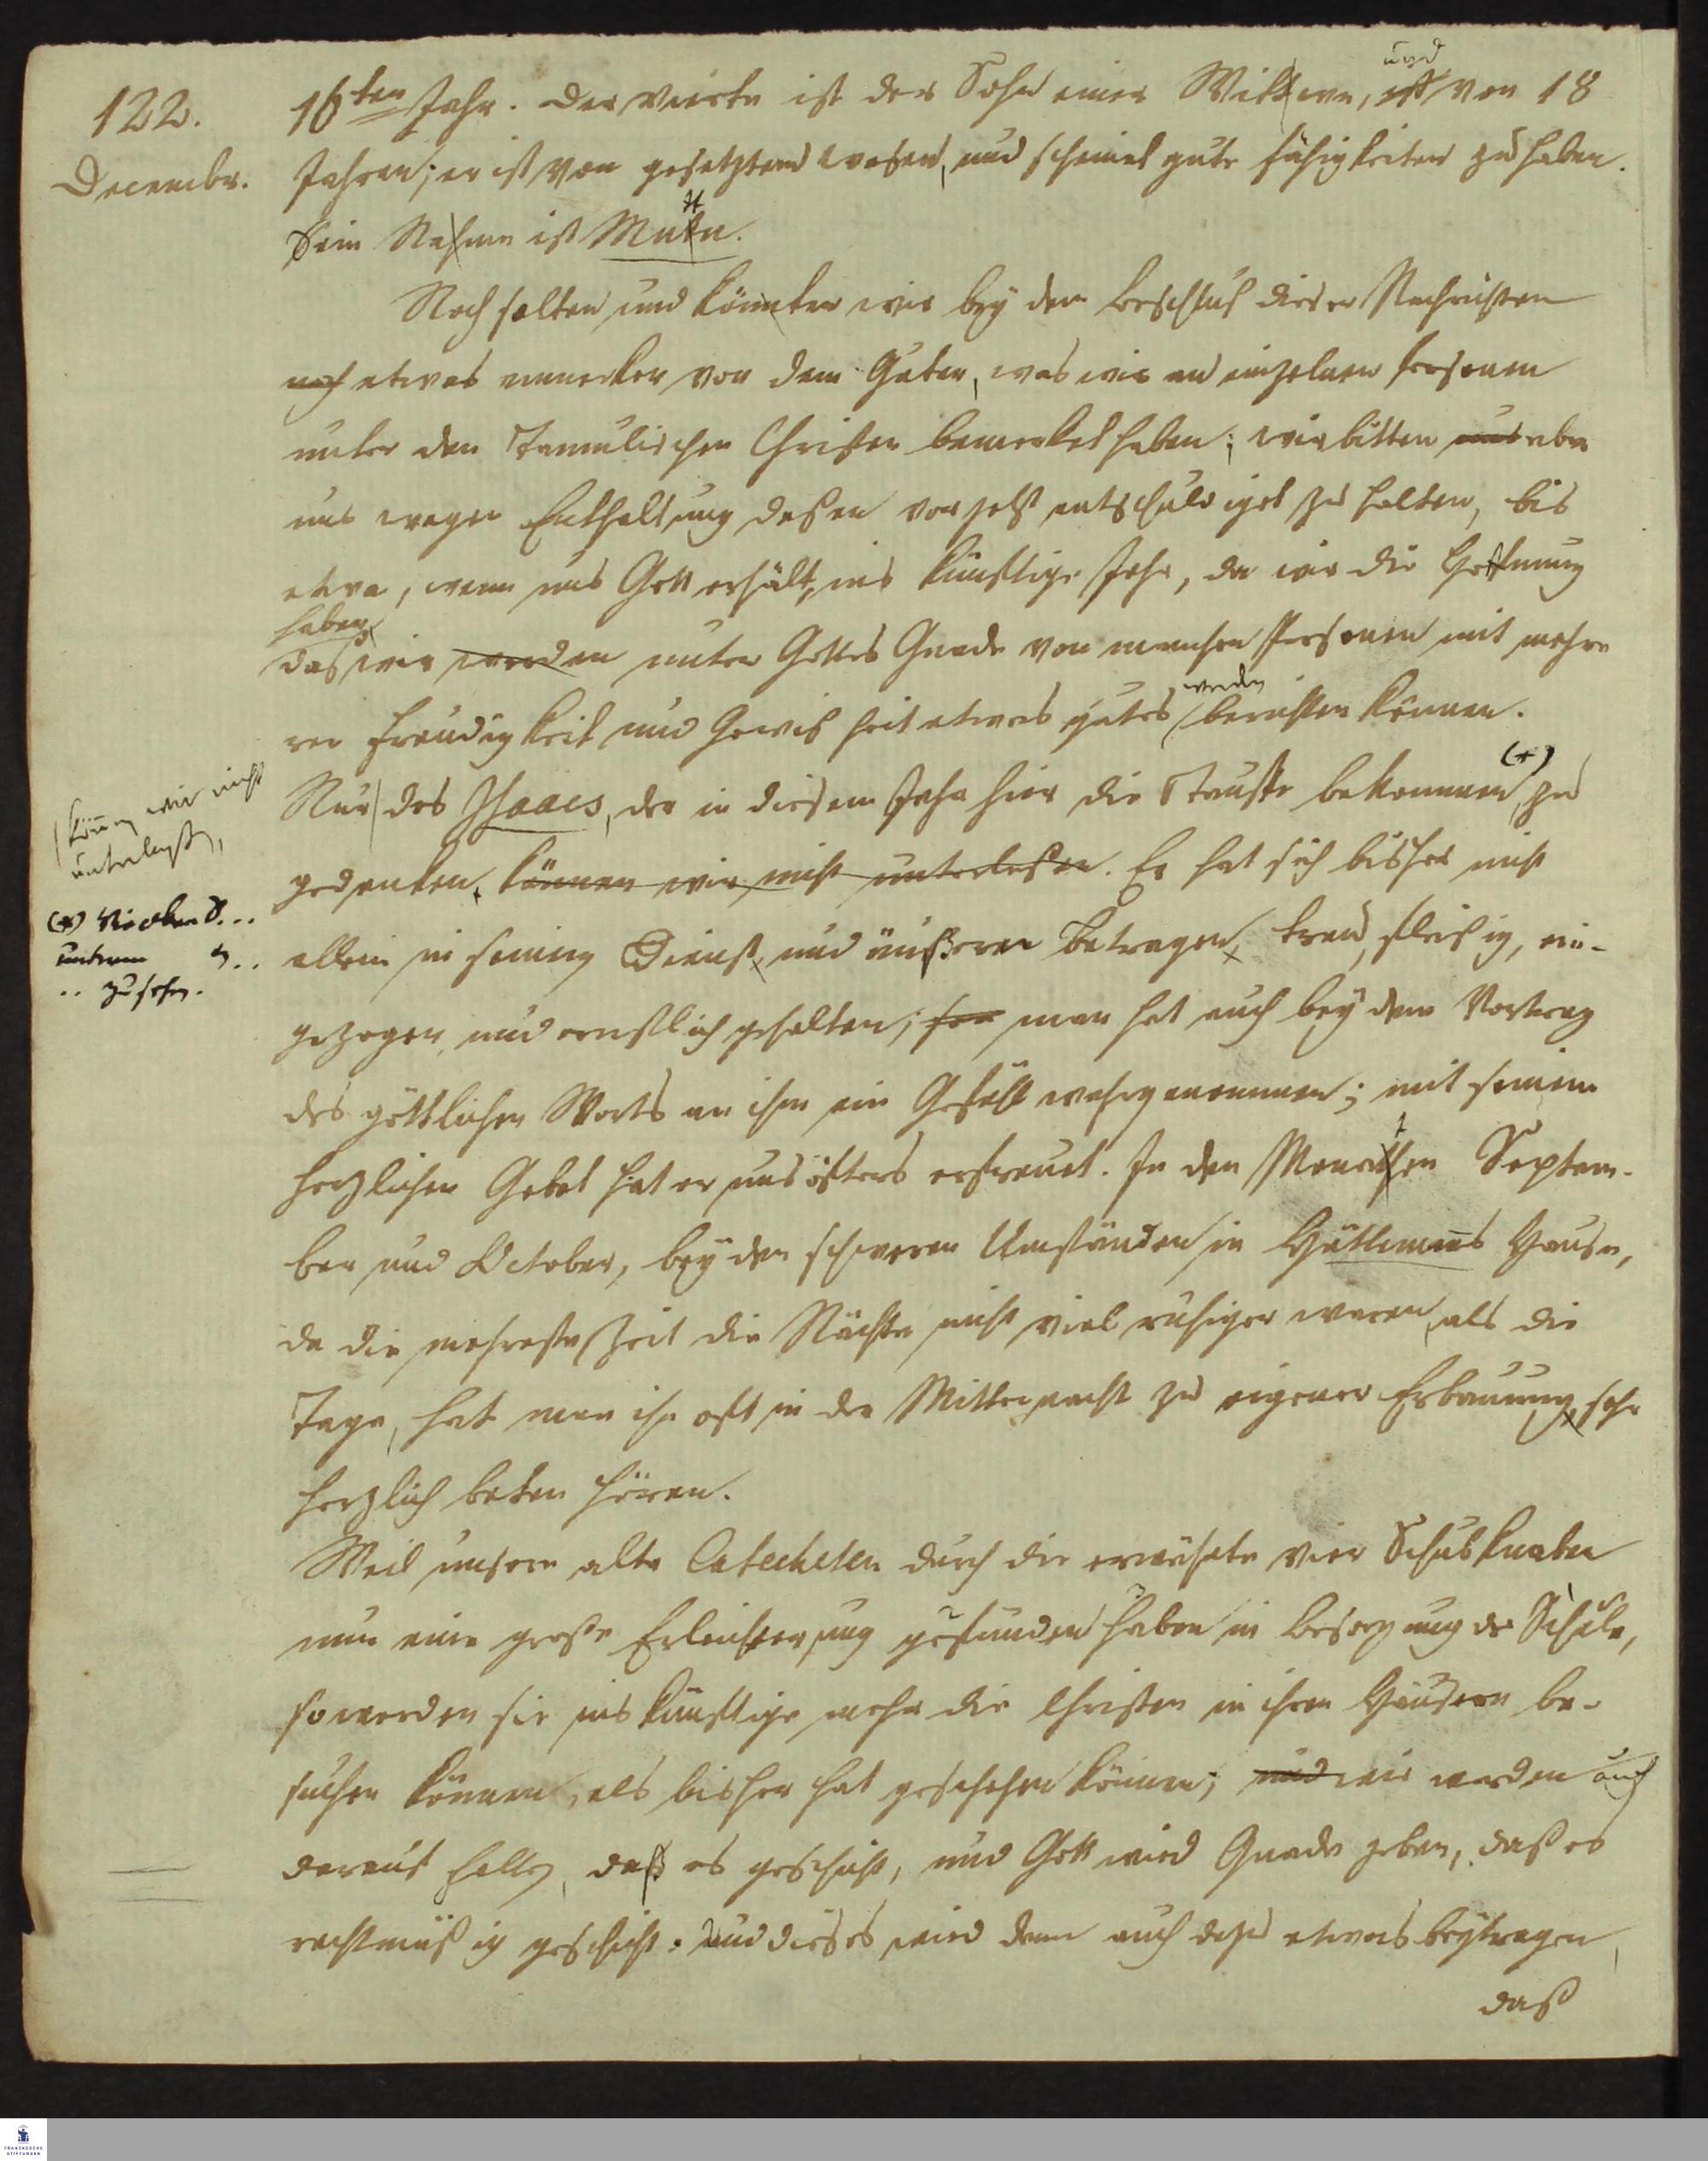 122.
Decembr.
16ten Jahr. Der vierte ist der Sohn einer Wittwe, ist und von 18
Jahren; er ist von gesetztem Wesen, und scheinet gute Fähigkeiten zu haben.
Sein Nahme ist Muttu.
Noch solten und könten wir bey dem Beschluß dieser Nachrichten
noch etwas anmerken von dem Guten, was wir an einzelnen Personen
unter den Tamulischen Christen bemerket haben; wir bitten uns aber
uns wegen Enthaltung deßen vor jetzt entschuldiget zu halten, bis
etwa, wenn uns Gott erhält, ins künftige Jahr, da wir die Hoffnung
haben
daß wir werden unter Gottes Gnade von manchen Personen mit mehre
rer Freudigkeit und Gewisheit etwas gutes werden berichten können.
Nur des Isaacs, der in diesem Jahr hier die Tauffe bekommen (+), zu
können wir nicht
unterlaßen,
gedenken, können wir nicht unterlaßen. Er hat sich bisher nicht
(+) Sie oben S...
unterm
.. zu sehen.
allein in seinem Dienst, und äußeren Betragen, treu, fleisig, ein-
gezogen, und ernstlich gehalten; son man hat auch bey dem Vortrag
des göttlichen Worts an ihm ein Gefühl wahrgenommen; mit seinem
herzlichen Gebet hat er uns öfters erfreuet. In den Monathen Septem-
ber und October, bey den schweren Umständen in Hüttemanns Hause,
da die mehreste Zeit die Nächte nicht viel ruhiger waren, als die
Tage, hat man ihn oft in der Mitternacht zu eigener Erbauung, sehr
herzlich beten hören.
Weil unsere alte Catecheten durch die erwehnte vier Schulknaben
nun eine große Erleichterung gefunden haben in Besorgung der Schule,
so werden sie ins künftige mehr die Christen in ihren Häusern be-
suchen können, als bisher hat geschehen können; und wir werden auch
darauf halten, daß es geschieht, und Gott wird Gnade geben, daß es
rechtmäßig geschieht. Und dieses wird denn auch dazu etwas beytragen,
daß
FRANCKESCHE
STIFTUNGEN